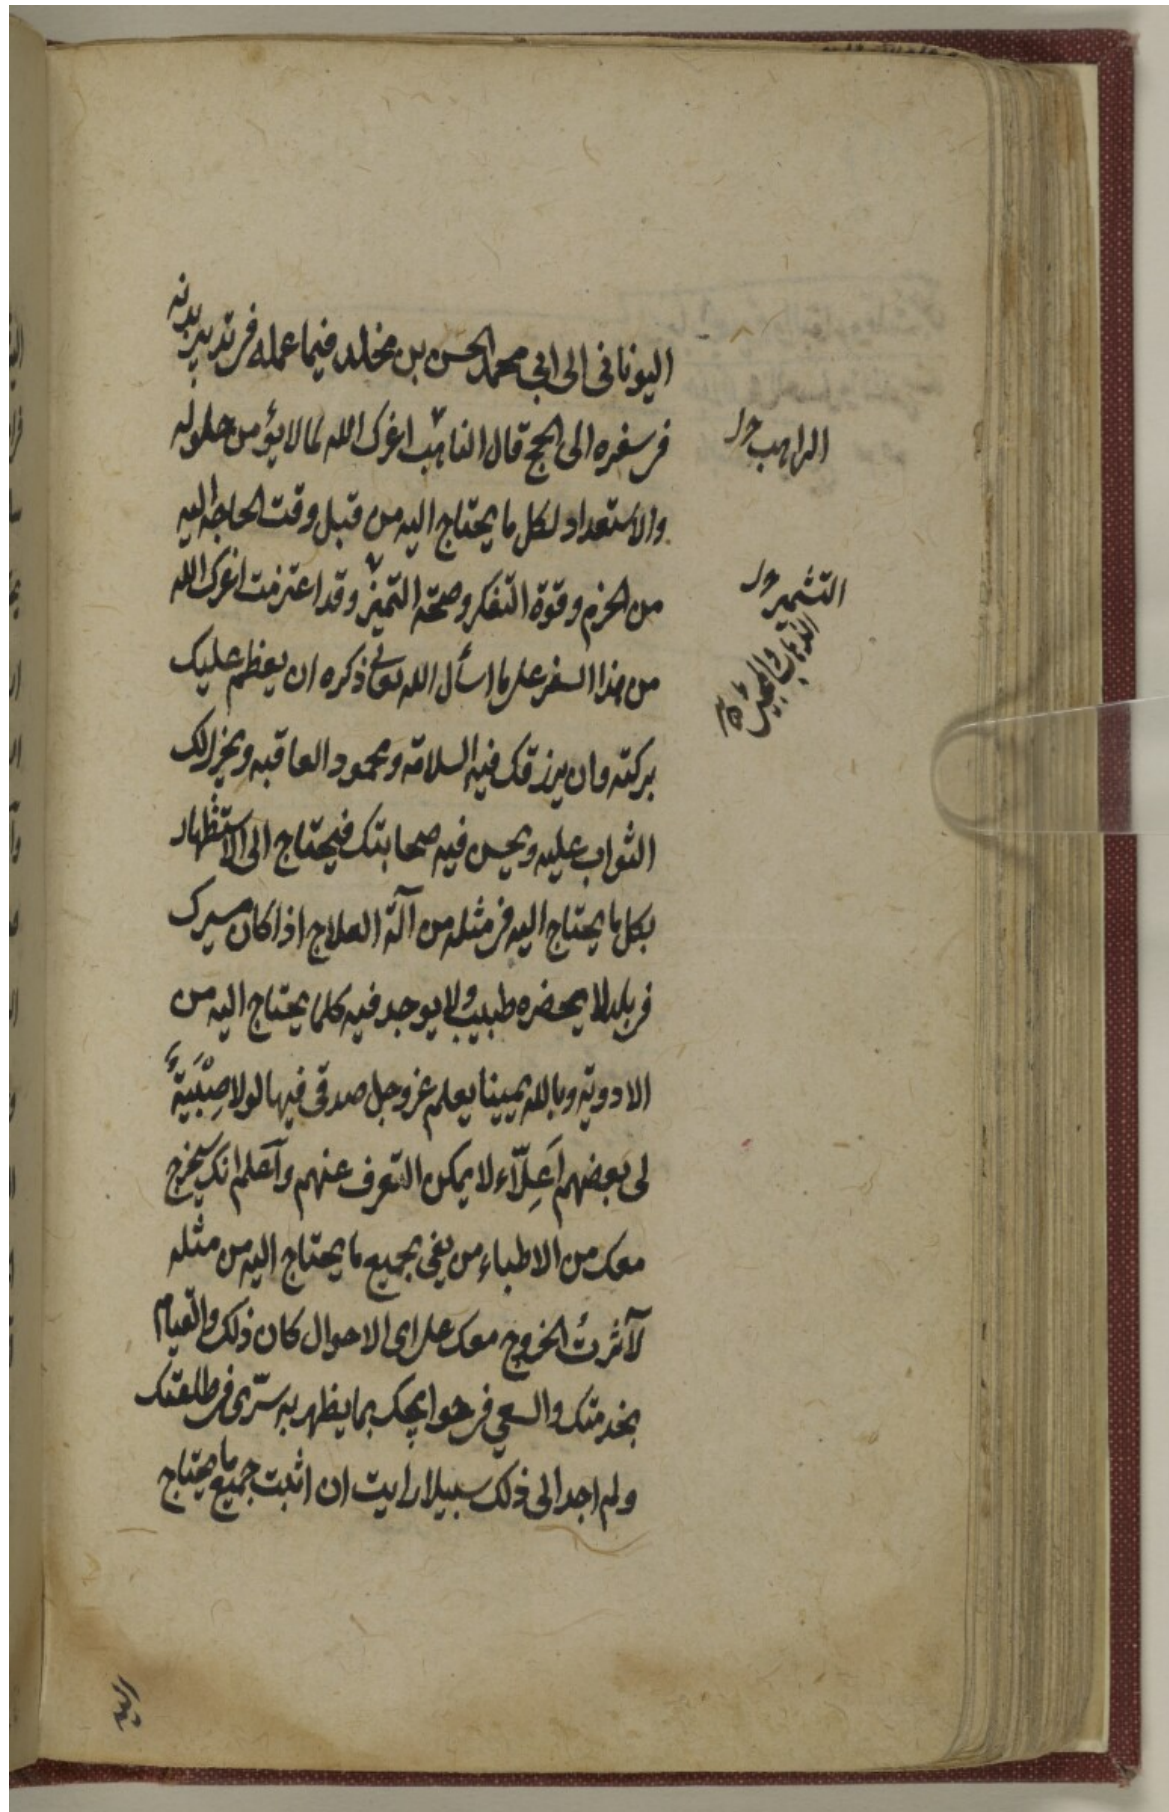 اليوناني الى ابي محمد الحسن بن مخلد فيما عمله في تدبير بدنه
في سفره الى الحج قال التاهب اعزك الله لما لا يؤمن حلوله
الراهب
والاستعداد لكل ما يحتاج اليه من قبل وقت الحاجة اليه
من الحزم وقوة التفكر وصحة التميز وقد اعتزمت اعزك الله
التشمير
من هذا السفر على ما اسأل الله تعالى ذكره ان يعظم عليك
بركته وان يرزقك فيه السلامة ومحمود العاقبه ويجزل لك
الثواب عليه ويحسن فيه صحابتك فيحتاج الى الاستظهار
بكل ما يحتاج اليه في مثله من آلة العلاج اذا كان مسيرك
في بلد لا يحضره طبيب ولا يوجد فيه كلما يحتاج اليه من
الادوية وبالله يمينا يعلم عز وجل صدقي فيها لولا صِبْيَةٌ
لي بعضهم اَعِلّآء لا يمكن التعرف عنهم وآعلم انك تخرج
معك من الاطباء من يفي بجميع ما يحتاج اليه من مثله
لآثرتُ الخروج معك على اى الاحوال كان ذلك والقيام
بخدمتك والسعي في حوايجك بما يظهر به سرّى في طلعتك
ولم اجد الى ذلك سبيلا رايت ان اثبت جميع ما يحتاج